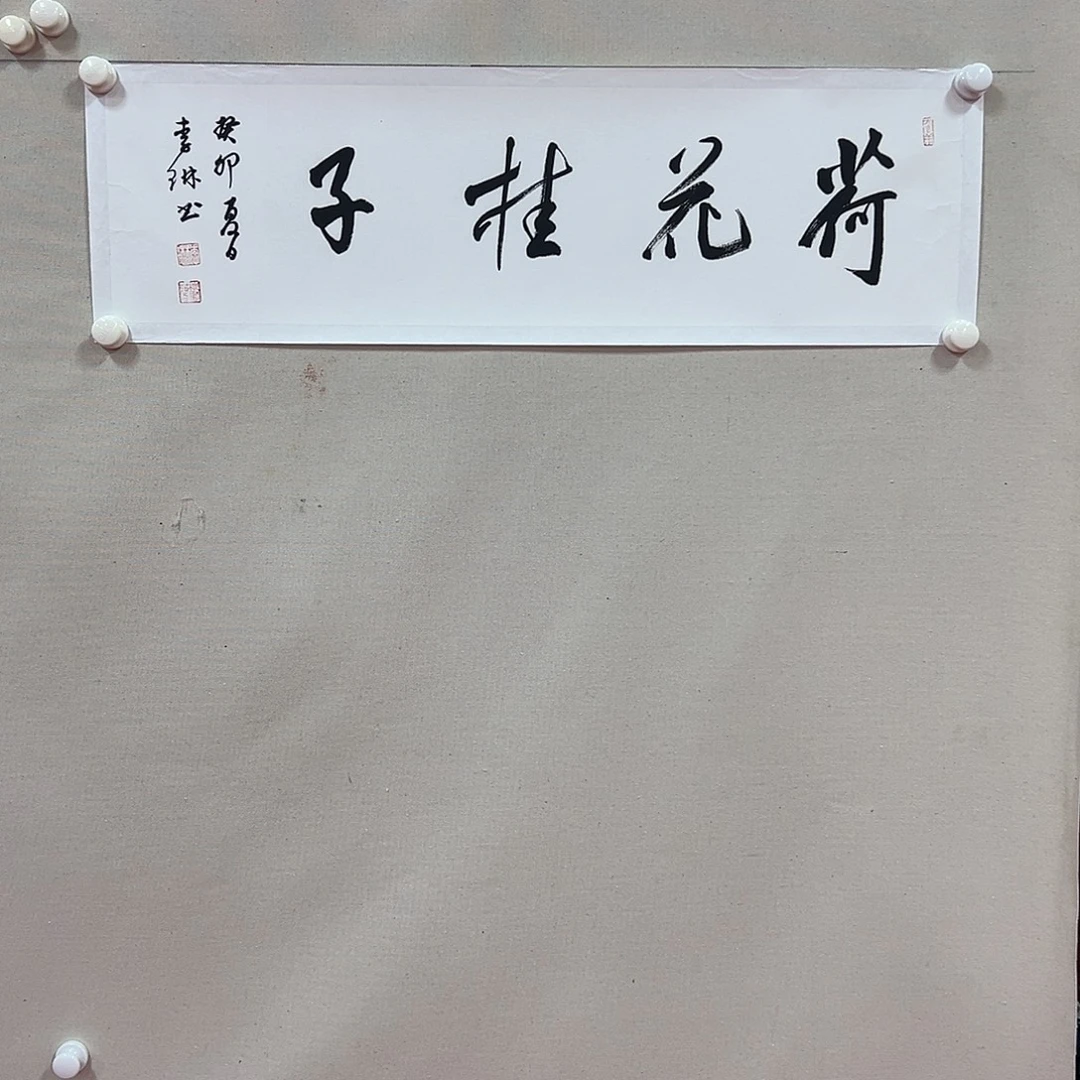 荷花桂子
癸卯夏日
李琳书